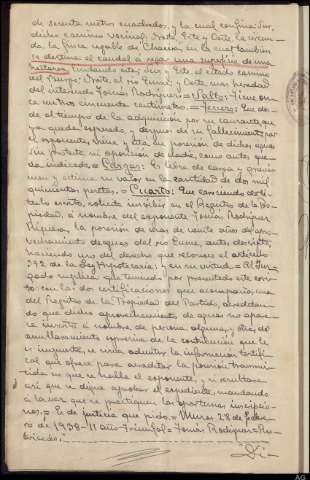 de sesenta metros cuadrados, y la cual confina: Sur,
dicho camino vecinal; Norte, Este y Oeste la
da, la finca regable de en la cual también
se destina el caudal a regar una superficie de una
hectárea, lindando ésta; Sur y Este el citado camino
del Norte, el río Eume; y Oeste una heredad
del interesado Tomás Rodríguez = Salto: Tiene on-
ce metros cincuenta centímetros. = Tercero: Que des-
de el tiempo de la adquisición por su causante, que
ya queda expresado, y después de su fallecimiento por
el exponente, viene y está en posesión de dichas aguas
sin protesta ni oposición de nadie, como antes que-
da indicado. = Cargas: Es libre de cargas y graváme-
nes y estima su valor en la cantidad de dos mil
quinientas pesetas. = Cuarto: Que careciendo de tí-
tulo escrito, solicita inscribir en el Registro de la Pro-
piedad, a nombre del exponente Tomás Rodríguez
la posesión de más de veinte años del apro-
vechamiento de aguas del río Eume, antes descrito,
haciendo uso del derecho que reconoce el artículo
392 de la Ley Hipotecaria, y en su virtud = Al Juz-
gado suplica que teniendo por presentado este escri-
to con las dos certificaciones que acompaña, una
del Registro de la Propiedad del Partido, acreditan-
do que dicho aprovechamiento de aguas no apare-
ce inscrito a nombre de persona alguna, y otra, del
amillaramiento expresivo de la contribución que le
es imputable, se sirva admitir la información testifi-
cal que ofrece para acreditar la posesión
en que se halla el exponente, y si resultare
así que se digne aprobar el expediente, mandando
a la vez que se practiquen las oportunas inscripcio-
nes. = Es de justicia que pido. = Muras 28 de
ro de 1938 - II año Triunfal = Tomás Rodríguez = Ru-
bricados. =
Di-
AG